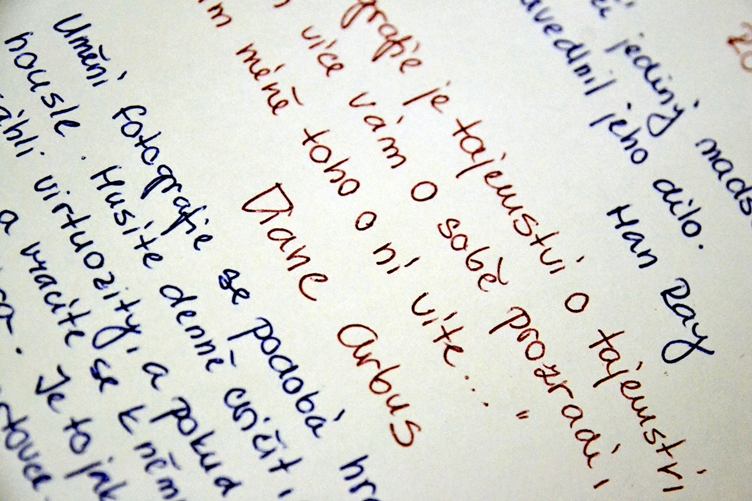 20
čí jediný nads
avednil jeho dílo.
Man Ray
grafie je tajemství o tajemství
více vám o sobě prozradí,
m méně toho o ní víte... "
Diane Arbus
Umění fotografie se podobá hr
housle. Musíte denně cvičit,
áhli virtuozity, a pokud
a vracíte se k něm
Je to jak